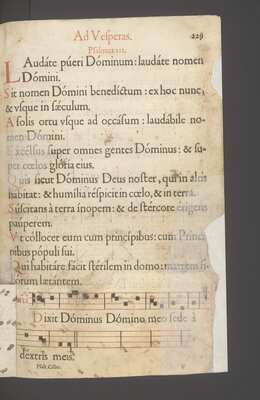 Ad Vesperas. 229
Psalmus 112.
LAudáte púeri Dóminum: laudáte nomen
Dómini.
Sit nomen Dómini benedictum: ex hoc nunc,
& vsque in sæculum.
A solis ortu vsque ad occásum: laudábile no-
men Dómini.
Excélsus super omnes gentes Dóminus: & su-
per cœlos glória eius.
Quis sicut Dóminus Deus noster, qui in altis
habitat: & humília réspicit in cœlo, & in terra.
Súscitans à terra ínopem: & de stércore érigens
pauperem.
Vt cóllocet eum cum princípibus: cum Princi-
pibus pópuli sui.
Qui habitáre facit stérilem in domo: matrem fi-
liorum lætántem.
Dixit Dóminus Dómino meo sede à
dextris meis.